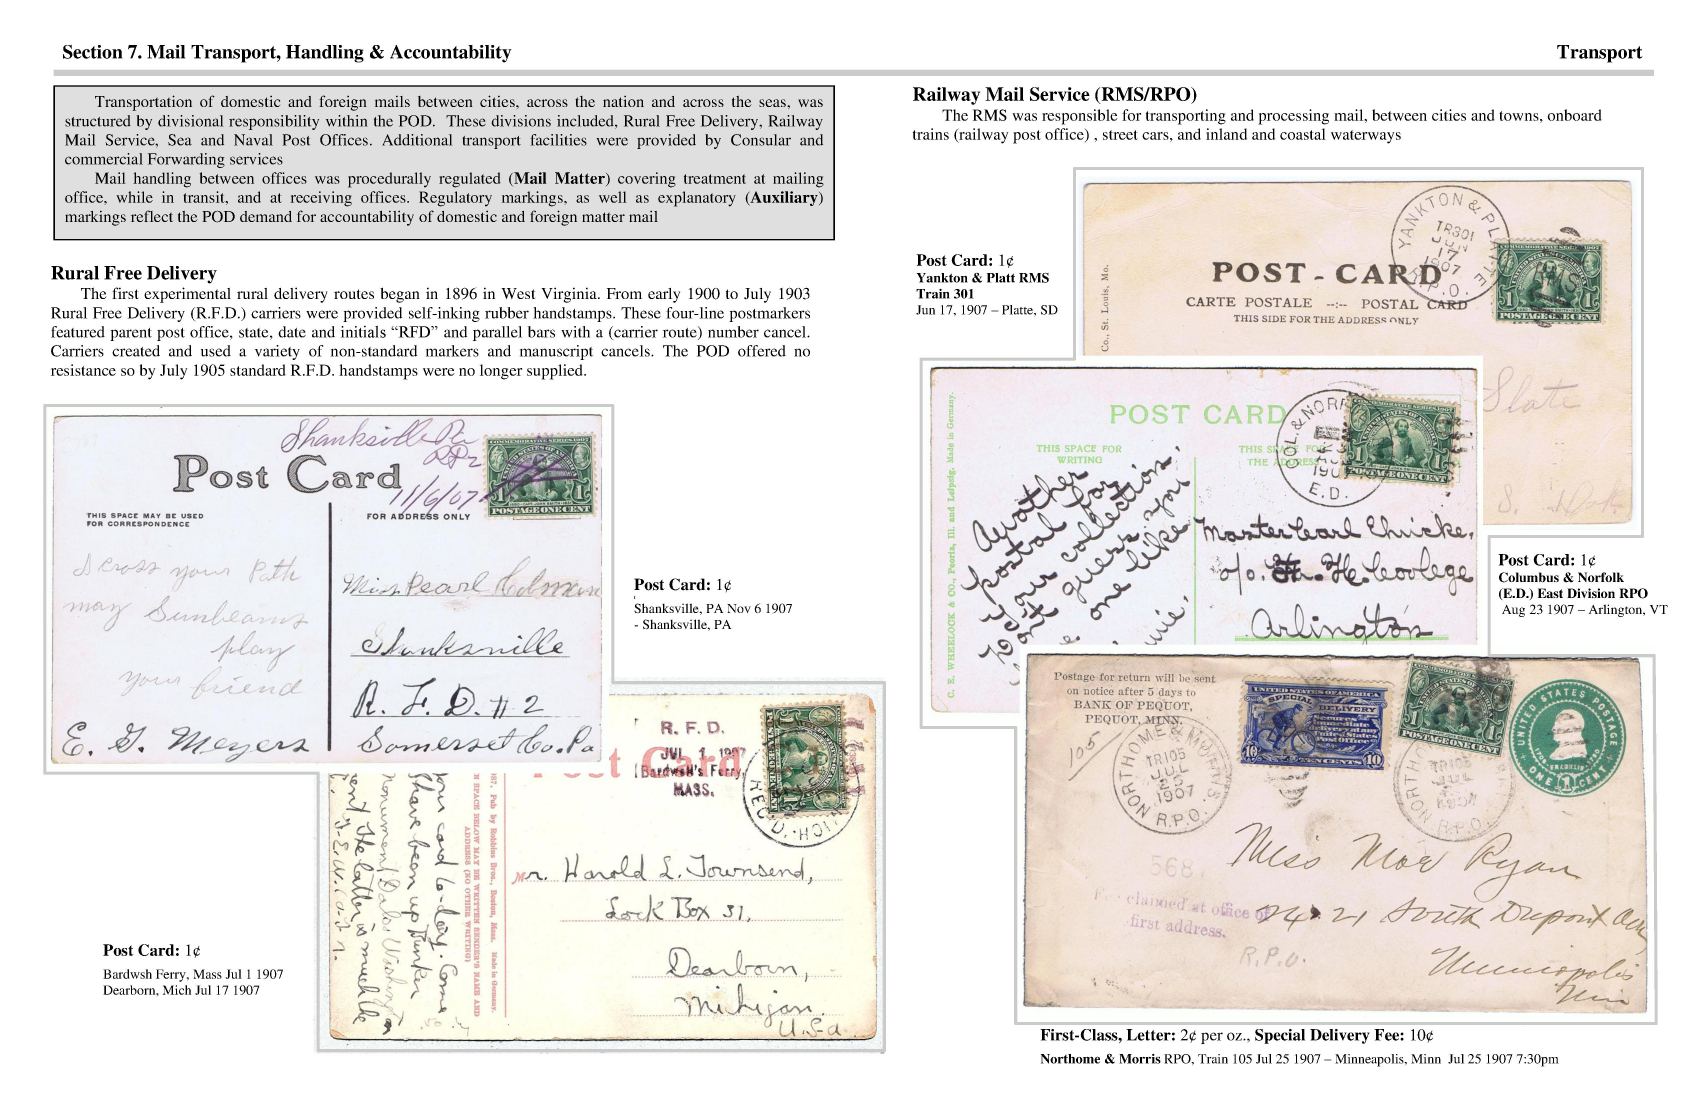 Section 7. Mail Transport, Handling & Accountability
Transport
Transportation of domestic and foreign mails between cities, across the nation and across the seas, was
structured by divisional responsibility within the POD. These divisions included, Rural Free Delivery, Railway
Mail Service, Sea and Naval Post Offices. Additional transport facilities were provided by Consular and
commercial Forwarding services
Mail handling between offices was procedurally regulated (Mail Matter) covering treatment at mailing
office, while in transit, and at receiving offices. Regulatory markings, as well as explanatory (Auxiliary)
markings reflect the POD demand for accountability of domestic and foreign matter mail
Rural Free Delivery
The first experimental rural delivery routes began in 1896 in West Virginia. From early 1900 to July 1903
Rural Free Delivery (R.F.D.) carriers were provided self-inking rubber handstamps. These four-line postmarkers
featured parent post office, state, date and initials “RFD” and parallel bars with a (carrier route) number cancel.
Carriers created and used a variety of non-standard markers and manuscript cancels. The POD offered no
resistance so by July 1905 standard R.F.D. handstamps were no longer supplied.
Shanksville Pa
11/6/07
Post Card
THIS SPACE MAY BE USED
FOR CORRESPONDENCE
FOR ADDRESS ONLY
COMMEMORATIVE SERIES 1907
1 1
POSTAGE ONE CENT
Across your Path
may Sunbeams
play
your friend
E. G. Meyers
Miss Pearl
Shanksville
R. F. D. # 2
Somerset Co. Pa
Post Card: 1¢
Shanksville, PA Nov 6 1907
- Shanksville, PA
R. F. D.
JUL 1 1907
Bardwell's Ferry,
MASS.
Post Card
REC'D.
Pub by Robbins Bros., Boston, Mass. Made in Germany.
SPACE BELOW MAY BE WRITTEN SENDER'S NAME AND
ADDRESS (NO OTHER WRITING)
your card to-day. Come
Have been up
Monument
The latter is much
Mr. Harold L. Townsend,
Lock Box 31,
Dearborn,
Michigan.
U.S.a.
Post Card: 1¢
Bardwsh Ferry, Mass Jul 1 1907
Dearborn, Mich Jul 17 1907
Railway Mail Service (RMS/RPO)
The RMS was responsible for transporting and processing mail, between cities and towns, onboard
trains (railway post office) , street cars, and inland and coastal waterways
Post Card: 1¢
Yankton & Platt RMS
Train 301
Jun 17, 1907 – Platte, SD
YANKTON & PLATTE
R.P.O.
TR301
JUN
17
1907
POST-CARD
CARTE POSTALE --:-- POSTAL CARD
THIS SIDE FOR THE ADDRESS ONLY
Co., St. Louis, Mo.
COMMEMORATIVE SERIES 1907
1 1
POSTAGE ONE CENT
POST CARD
THIS SPACE FOR
WRITING
THIS SPACE FOR
THE ADDRESS
C. E. WHEELOCK & CO., Peoria, Ill. and Leipzig. Made in Germany.
COL. & NORF
E.D.
1 1
POSTAGE ONE CENT
Another
postal for
your collection.
guess you
one like
Master Carl
Arlington
Post Card: 1¢
Columbus & Norfolk
(E.D.) East Division RPO
Aug 23 1907 – Arlington, VT
Postage for return will be sent
on notice after 5 days to
BANK OF PEQUOT,
PEQUOT, MINN.
105
NORTHOME & MORRIS
TR105
JUL
25
1907
R.P.O.
UNITED STATES OF AMERICA
SPECIAL DELIVERY
Secures
immediate
delivery at any
United States
Post Office
10 TEN CENTS 10
1 1
POSTAGE ONE CENT
NORTHO
TR105
JUL
R.P.O.
UNITED STATES POSTAGE
ONE 1 CENT
568
Fee claimed at office of
first address.
R.P.O.
Miss Mae Ryan
2421 South Dupont Ave
Minneapolis
Minn
First-Class, Letter: 2¢ per oz., Special Delivery Fee: 10¢
Northome & Morris RPO, Train 105 Jul 25 1907 – Minneapolis, Minn Jul 25 1907 7:30pm